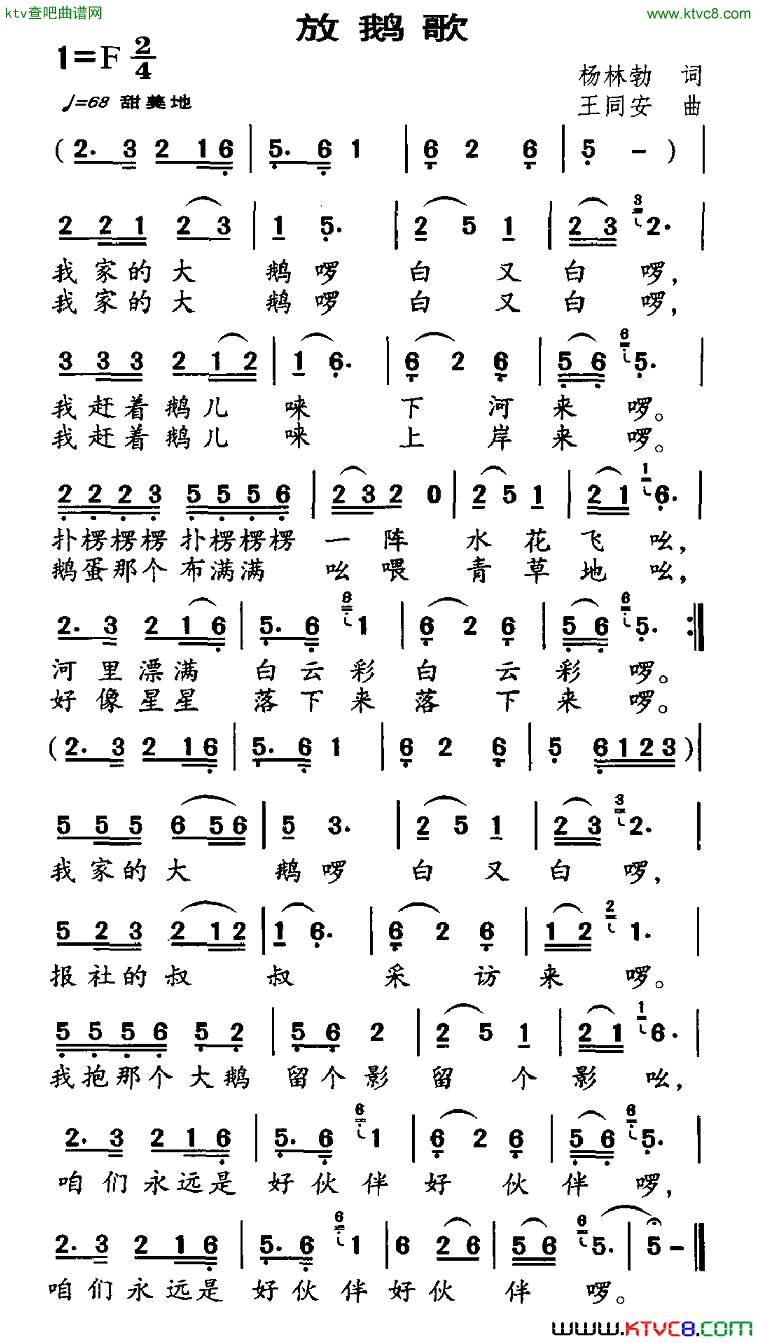 ktv查吧曲谱网
www.ktvc8.com
放鹅歌
1=F 2/4
♩=68 甜美地
杨林勃 词
王同安 曲
( 2. 3 2 1 6 | 5. 6 1 | 6 2 6 | 5 - ) |
2 2 1 2 3 | 1 5. | 2 5 1 | 2 3 3 2. |
我家的大 鹅啰 白又白啰,
我家的大 鹅啰 白又白啰,
3 3 3 2 1 2 | 1 6. | 6 2 6 | 5 6 6 5. |
我赶着鹅儿 唻 下河来啰。
我赶着鹅儿 唻 上岸来啰。
2 2 2 3 5 5 5 6 | 2 3 2 0 | 2 5 1 | 2 1 1 6. |
扑楞楞楞 扑楞楞楞 一阵 水花飞吆,
鹅蛋那个 布满满 吆喂 青草地吆,
2. 3 2 1 6 | 5. 6 6 1 | 6 2 6 | 5 6 6 5. :||
河里漂满 白云彩 白云彩啰。
好像星星 落下来 落下来啰。
( 2. 3 2 1 6 | 5. 6 1 | 6 2 6 | 5 6 1 2 3 ) |
5 5 5 6 5 6 | 5 3. | 2 5 1 | 2 3 3 2. |
我家的大 鹅啰 白又白啰,
5 2 3 2 1 2 | 1 6. | 6 2 6 | 1 2 2 1. |
报社的叔 叔 采访来啰。
5 5 5 6 5 2 | 5 6 2 | 2 5 1 | 2 1 1 6. |
我抱那个大鹅 留个影 留个影吆,
2. 3 2 1 6 | 5. 6 6 1 | 6 2 6 | 5 6 6 5. |
咱们永远是 好伙伴 好伙伴啰,
2. 3 2 1 6 | 5. 6 6 1 | 6 2 6 | 5 6 6 5. | 5 - ||
咱们永远是 好伙伴好伙 伴啰。
www.KTVC8.com